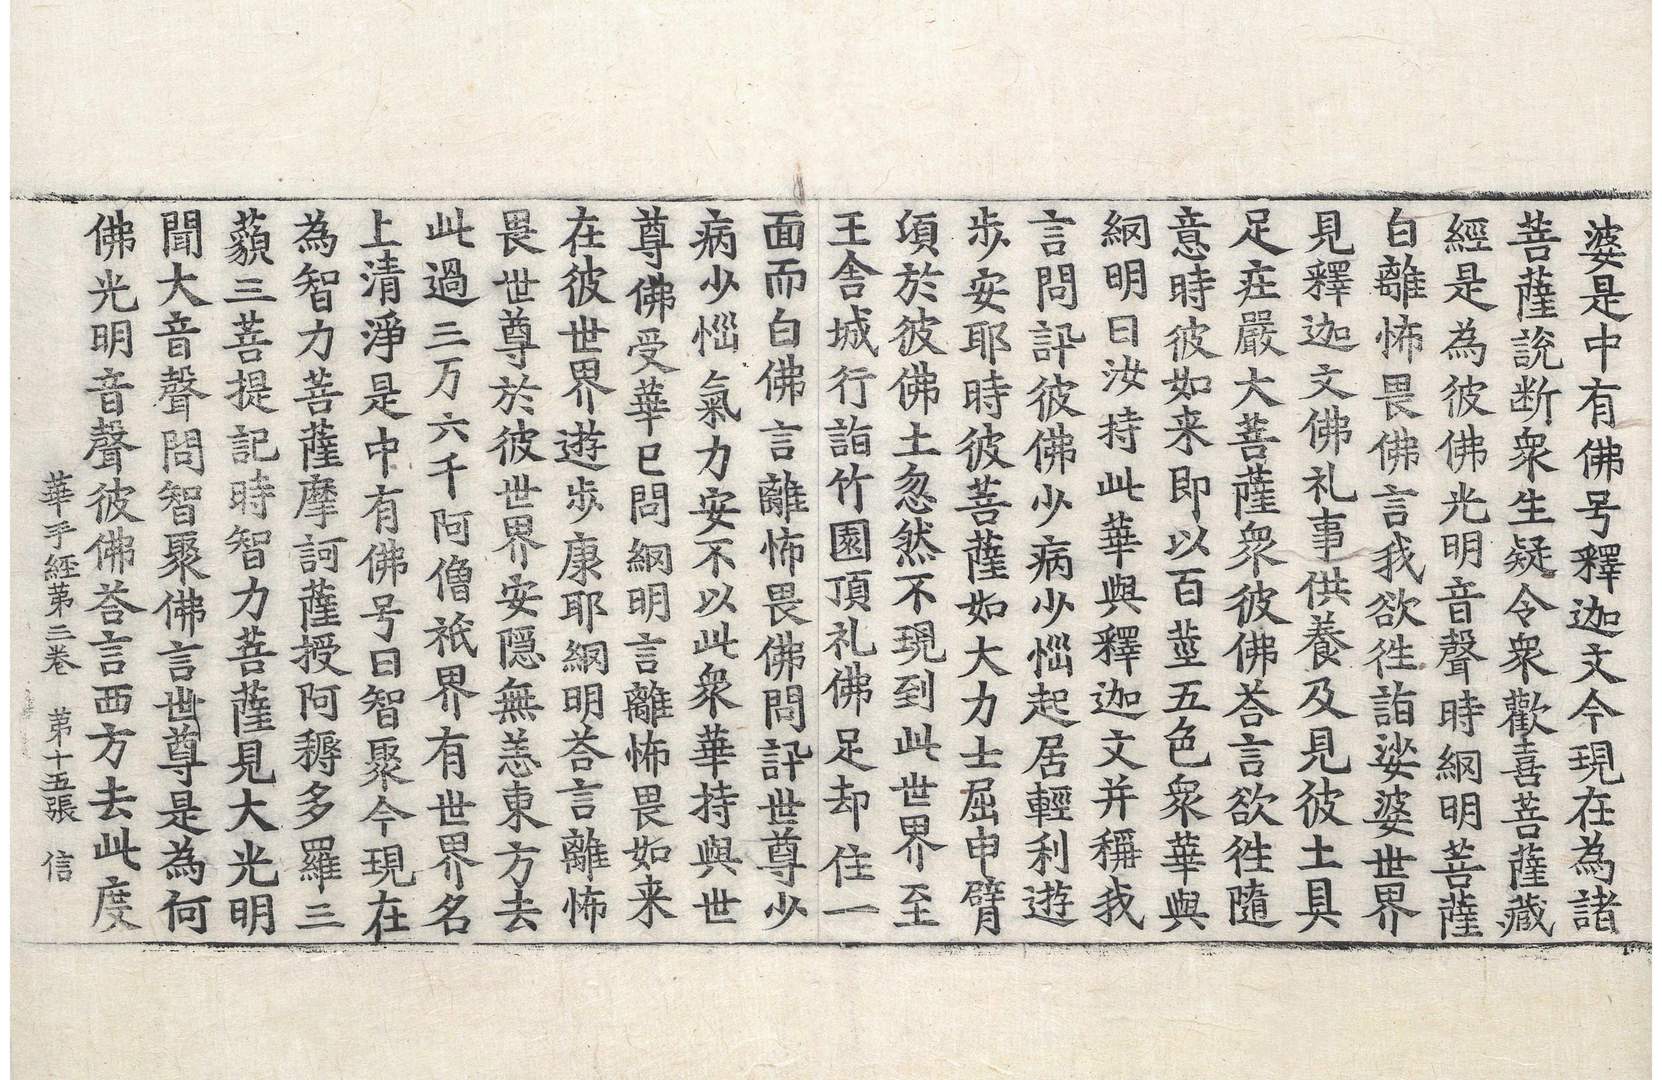 婆是中有佛号釋迦文今現在為諸
菩薩說断衆生疑令衆歡喜菩薩藏
經是為彼佛光明音聲時網明菩薩
白離怖畏佛言我欲徃詣娑婆世界
見釋迦文佛礼事供養及見彼土具
足莊嚴大菩薩衆彼佛荅言欲徃隨
意時彼如来即以百莖五色衆華與
網明曰汝持此華與釋迦文并稱我
言問訊彼佛少病少惱起居輕利遊
步安耶時彼菩薩如大力士屈申臂
頃於彼佛土忽然不現到此世界至
王舍城行詣竹園頂礼佛足却住一
面而白佛言離怖畏佛問訊世尊少
病少惱氣力安不以此衆華持與世
尊佛受華已問網明言離怖畏如来
在彼世界遊步康耶網明荅言離怖
畏世尊於彼世界安隱無恙東方去
此過三万六千阿僧祇界有世界名
上清淨是中有佛号曰智聚今現在
為智力菩薩摩訶薩授阿耨多羅三
藐三菩提記時智力菩薩見大光明
聞大音聲問智聚佛言世尊是為何
佛光明音聲彼佛荅言西方去此度
華手經第三卷 第十五張 信